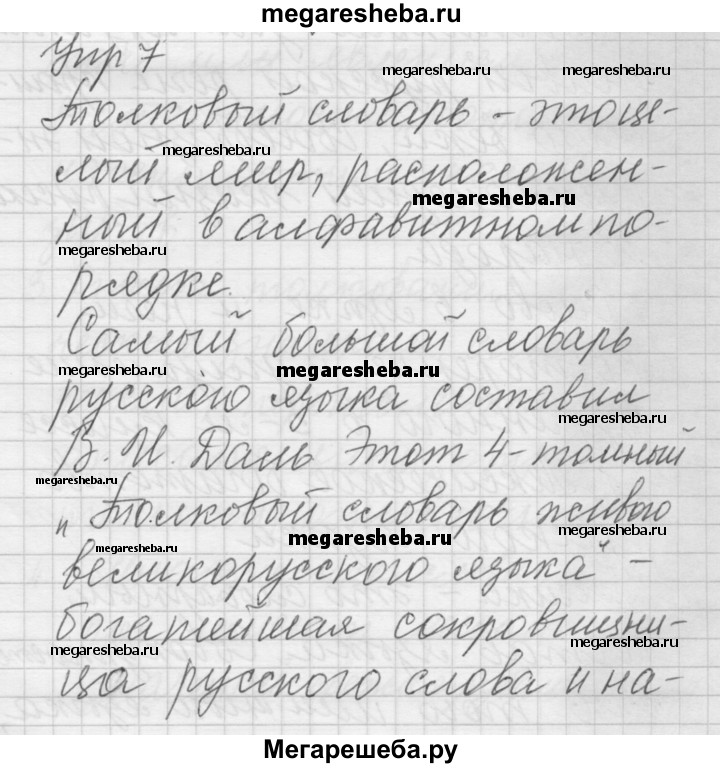 megaresheba.ru
Упр 7
megaresheba.ru megaresheba.ru
Толковый словарь - это це-
megaresheba.ru
лый мир, расположен-
megaresheba.ru
ный в алфавитном по-
megaresheba.ru
рядке.
Самый большой словарь
megaresheba.ru megaresheba.ru
русского языка составил
megaresheba.ru
В. И. Даль Этот 4-томный
megaresheba.ru
"Толковый словарь живого
megaresheba.ru megaresheba.ru megaresheba.ru
великорусского языка" -
богатейшая сокровищни-
megaresheba.ru megaresheba.ru
ца русского слова и на-
Мегарешеба.ру